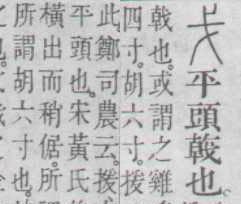 平頭戟也
戟也。或謂之雞
四寸。胡六寸。援
此。鄭司農云。援
平頭也。宋黃氏
橫出而稍倨。所
所謂胡六寸也。